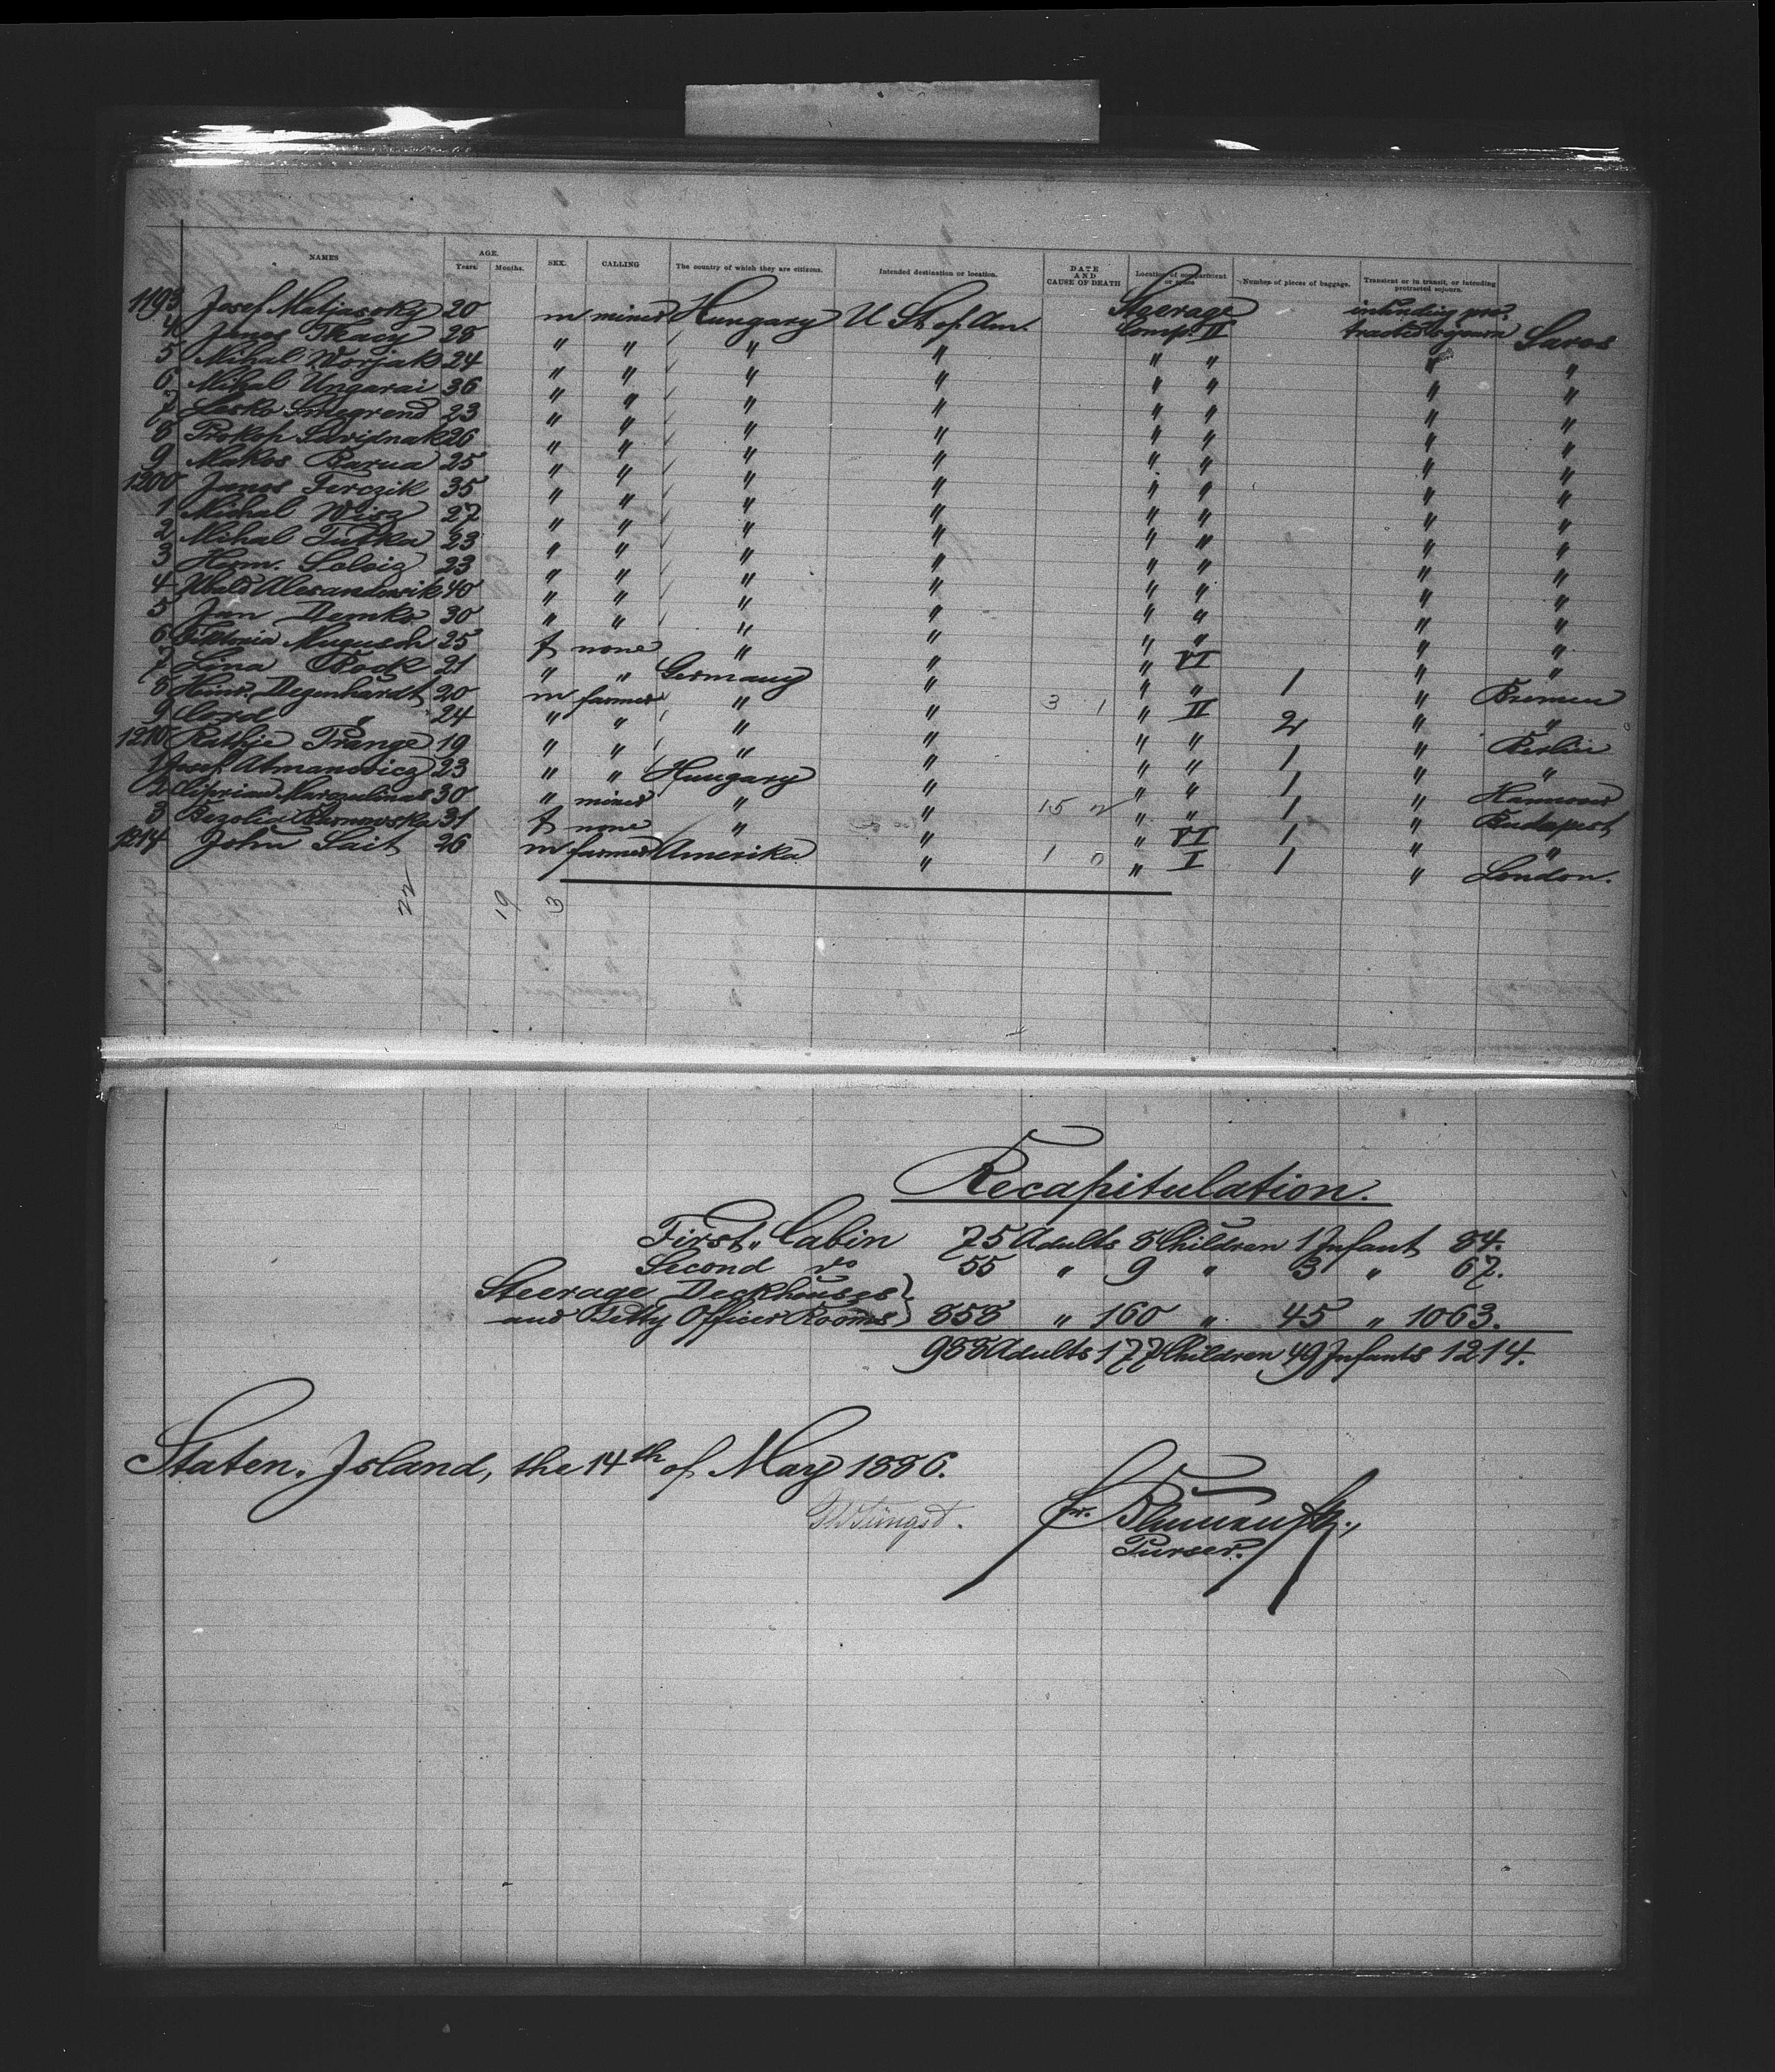 NAMES AGE. Years. Months. SEX. CALLING The country of which they are citizens. Intended destination or location. DATE AND CAUSE OF DEATH Location of compartment or space Number of pieces of baggage. Transient or in transit, or intending protracted sojourn.
1193 Josef Matjassky 20 m miner Hungary U St of Am. Steerage intending pro-
4 Janos Tkacy 28 " " " " Comp. II tracted sojourn Saros
5 Mihal Worjak 24 " " " " " " " "
6 Mihal Ungarai 36 " " " " " " " "
7 Lesko Smegrend 23 " " " " " " " "
8 Prokop Savidnak 26 " " " " " " " "
9 Makos Barua 25 " " " " " " " "
1200 Janos Ferczik 35 " " " " " " " "
1 Mihal Wisz 27 " " " " " " " "
2 Mihal Tutka 23 " " " " " " " "
3 Herm. Soloig 23 " " " " " " " "
4 Alesandrovik 40 " " " " " " " "
5 Jan Demko 30 " " " " " " " "
6 Viktoria Mugusch 25 f none " " " VI " "
7 Lina Bock 21 " " Germany " " " 1 " Bremen
8 Heinr. Degenhardt 20 m farmer " " 3 1 " II 2 " "
9 Cord " 24 " " " " " " " Berlin
1210 Rathje Prange 19 " " " " " " 1 " "
1 Josef Atmanovicz 23 " " Hungary " " " 1 " Hannover
2 Ciprian Marzulinas 30 " miner " " 15 2 " " 1 " Budapest
3 31 f none " " " VI 1 " "
1214 John Sait 26 m farmer Amerika " 1 0 " I 1 " London.
22 19 3
Recapitulation.
First. Cabin 75 Adults 8 Children 1 Infant 84.
Second do 55 " 9 " 3 " 67.
Steerage Deckhouses
and Petty Officer Rooms 858 " 160 " 45 " 1063.
988 Adults 177 Children 49 Infants 1214.
Staten. Island, the 14th of May 1886.
Purser.